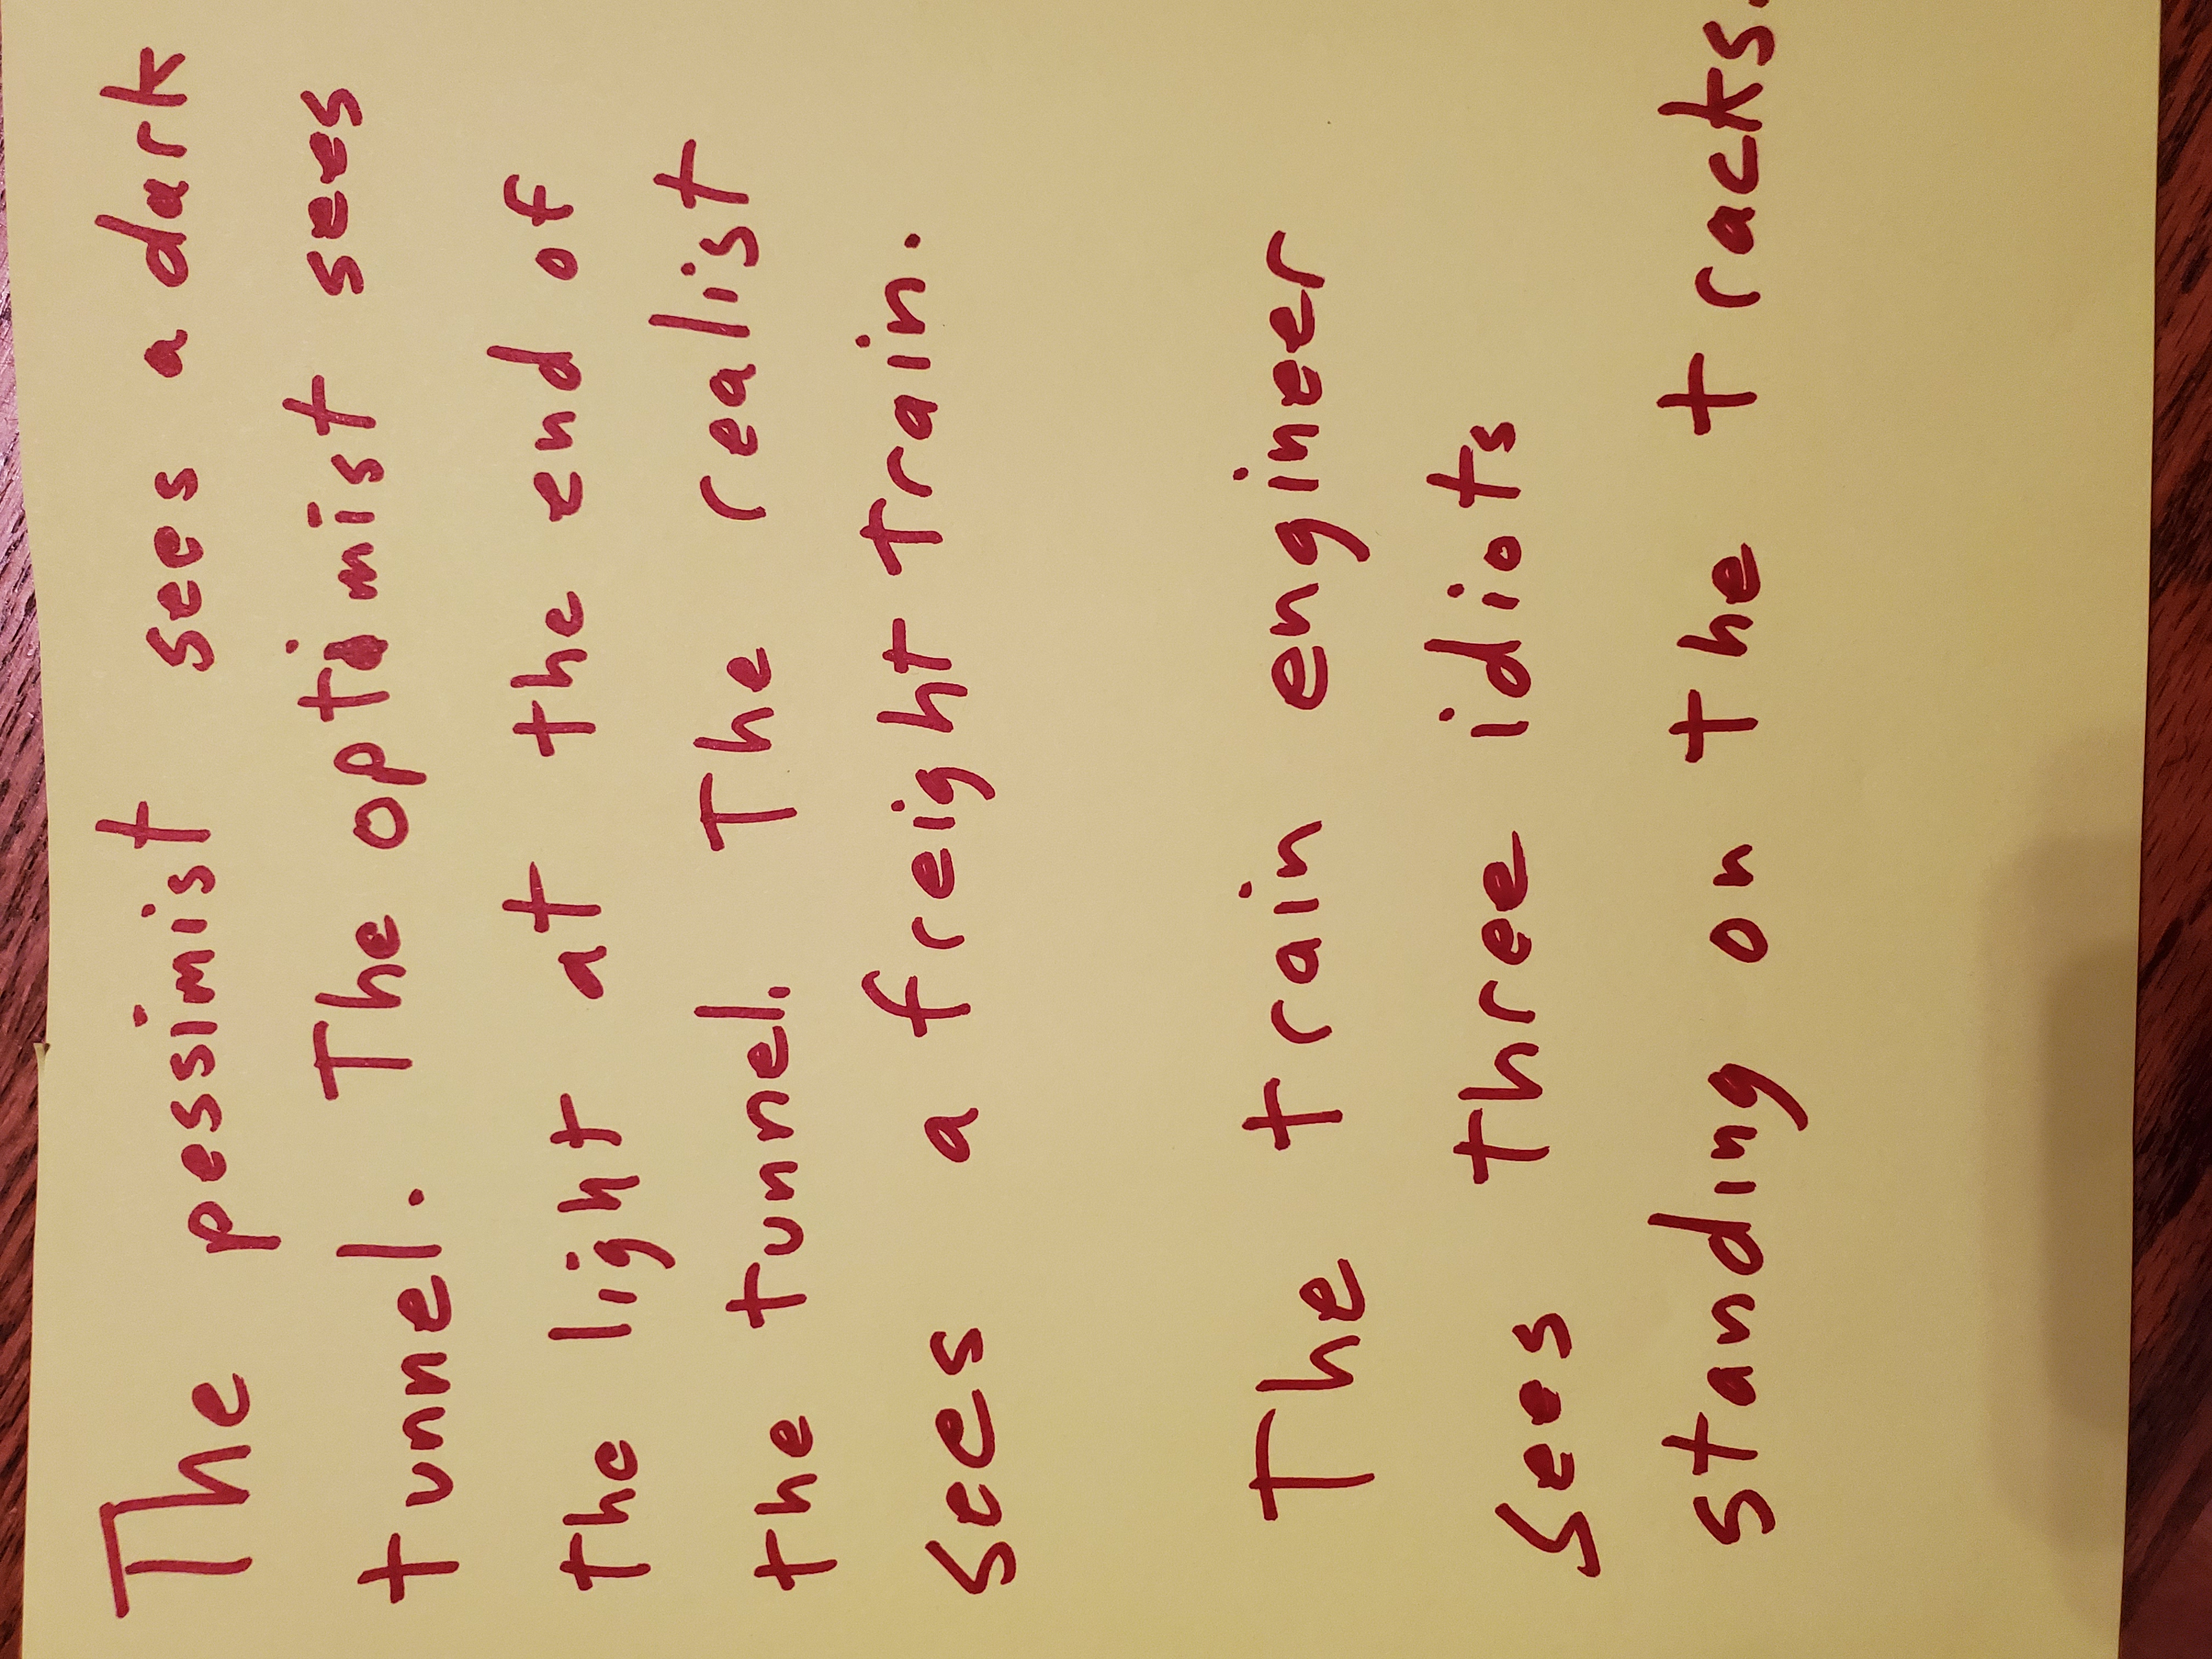 The pessimist sees a dark
tunnel. The optimist sees
the light at the end of
the tunnel. The realist
sees a freight train.
The train engineer
sees three idiots
standing on the tracks.